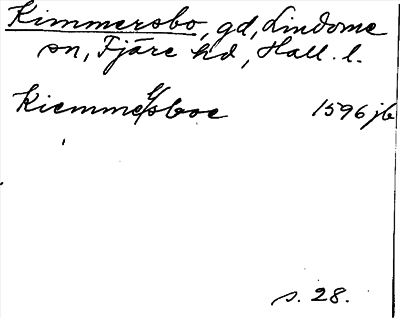 Kimmersbo, gd, Lindome
sn, Fjäre hd, Hall. l.
Kiemmersboe 1596 jb
s. 28.